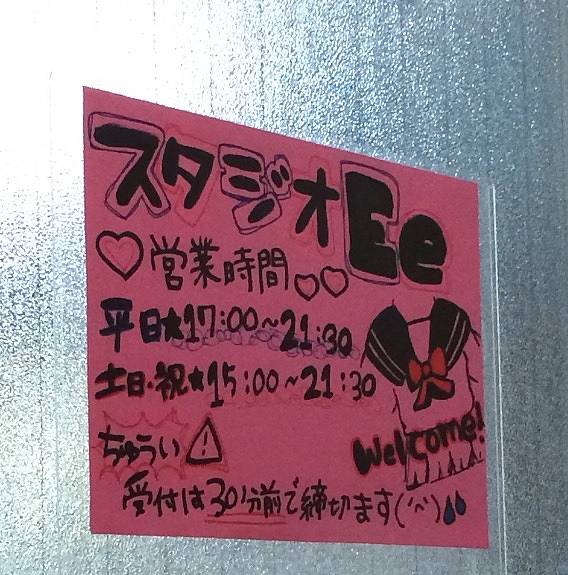 スタジオEe
♡営業時間♡♡
平日★17:00~21:30
土日・祝★15:00~21:30
Welcome!
ちゅうい⚠
受付は30分前で締切ます(´^`)